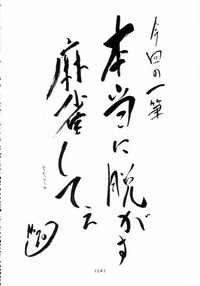 今回の一筆
本当に脱がす
麻雀してえ